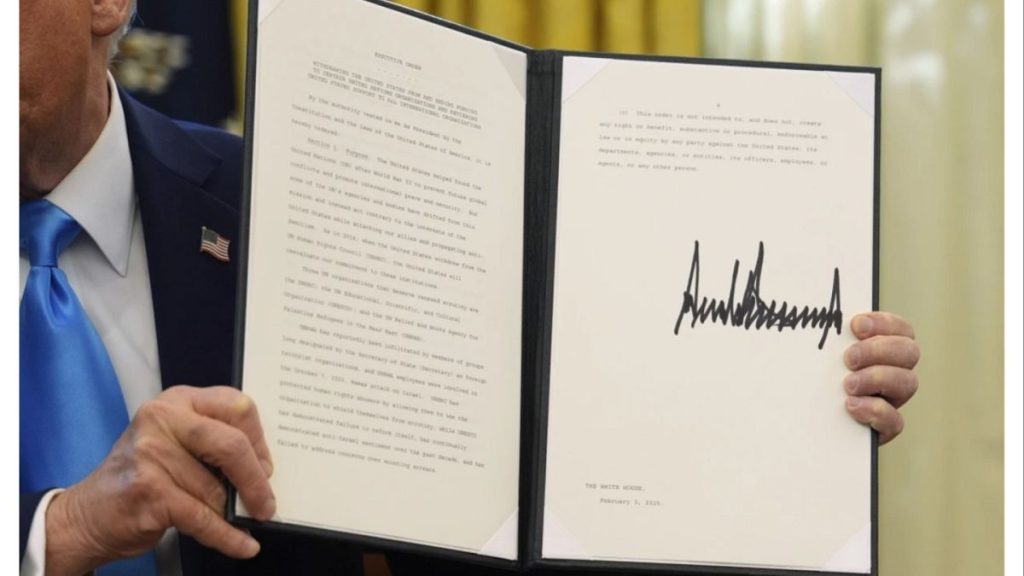 EXECUTIVE ORDER
WITHDRAWING THE UNITED STATES FROM AND ENDING FUNDING
TO CERTAIN UNITED NATIONS ORGANIZATIONS AND REVIEWING
UNITED STATES SUPPORT TO ALL INTERNATIONAL ORGANIZATIONS
By the authority vested in me as President by the
Constitution and the laws of the United States of America, it is
hereby ordered:
Section 1. Purpose. The United States helped found the
United Nations (UN) after World War II to prevent future global
conflicts and promote international peace and security. But
some of the UN's agencies and bodies have drifted from this
mission and instead act contrary to the interests of the
United States while attacking our allies and propagating anti-
Semitism. As in 2018, when the United States withdrew from the
UN Human Rights Council (UNHRC), the United States will
reevaluate our commitment to these institutions.
Three UN organizations that deserve renewed scrutiny are
the UNHRC; the UN Educational, Scientific, and Cultural
Organization (UNESCO); and the UN Relief and Works Agency for
Palestine Refugees in the Near East (UNRWA).
UNRWA has reportedly been infiltrated by members of groups
long designated by the Secretary of State (Secretary) as foreign
terrorist organizations, and UNRWA employees were involved in
the October 7, 2023, Hamas attack on Israel. UNHRC has
protected human rights abusers by allowing them to use the
organization to shield themselves from scrutiny, while UNESCO
has demonstrated failure to reform itself, has continually
demonstrated anti-Israel sentiment over the past decade, and has
failed to address concerns over mounting arrears.
This order is not intended to, and does not, create
any right or benefit, substantive or procedural, enforceable at
law or in equity by any party against the United States, its
departments, agencies, or entities, its officers, employees, or
agents, or any other person.
THE WHITE HOUSE,
February 2025.